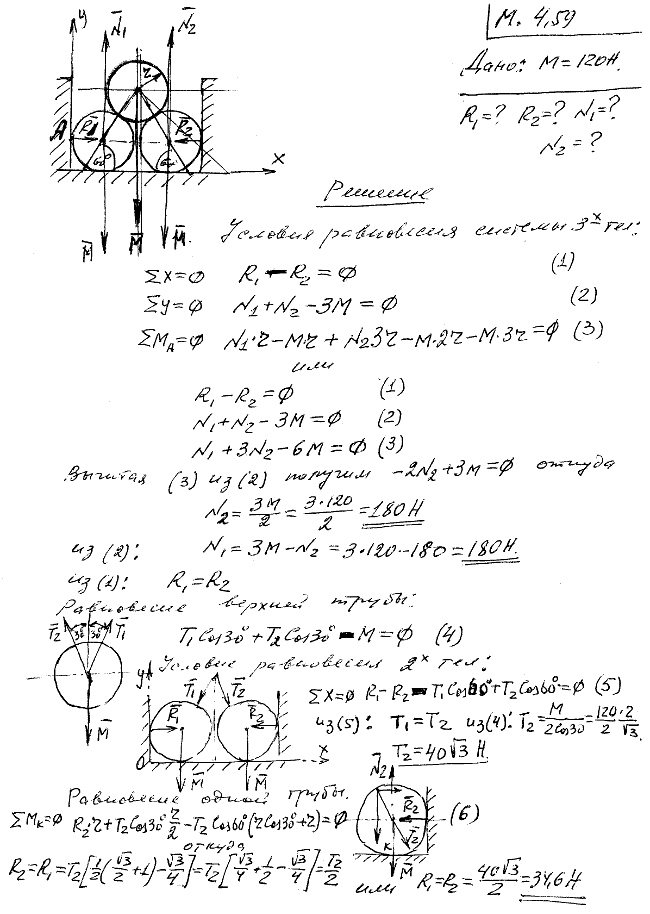 М. 4,59
Дано: M = 120Н.
R₁=? R₂=? N₁=?
N₂=?
y N̄₁ N̄₂
r
A R̄₁ R̄₂
60° 60° x
M̄ M̄ M̄
Решение
Условия равновесия системы 3ˣ тел:
ΣX=0 R₁ - R₂ = 0 (1)
ΣY=0 N₁+N₂-3M=0 (2)
ΣM_A=0 N₁·r-M·r+N₂3r-M·2r-M·3r=0 (3)
или
R₁-R₂=0 (1)
N₁+N₂-3M=0 (2)
N₁+3N₂-6M=0 (3)
Вычитая (3) из (2) получим -2N₂+3M=0 откуда
N₂=3M/2=3·120/2=180Н
из (2): N₁=3M-N₂=3·120-180=180Н.
из (1): R₁=R₂
Равновесие верхней трубы:
T̄₂ 30° 30° T̄₁
T₁Cos30°+T₂Cos30°-M=0 (4)
M̄
Условие равновесия 2ˣ тел:
y T̄₁ T̄₂
R̄₁ R̄₂
0 x
M̄ M̄
ΣX=0 R₁-R₂-T₁Cos60°+T₂Cos60°=0 (5)
из (5): T₁=T₂ из (4): T₂=M/2Cos30=120·2/2√3.
T₂=40√3 Н.
Равновесие одной трубы.
ΣM_K=0 R₂·r+T₂Cos30°r/2-T₂Cos60°(rCos30°+r)=0 (6)
N̄₂
R̄₂
K T̄₂
M̄
откуда
R₂=R₁=T₂[1/2(√3/2+1)-√3/4]=T₂[√3/4+1/2-√3/4]=T₂/2
или R₁=R₂=40√3/2=34,6Н